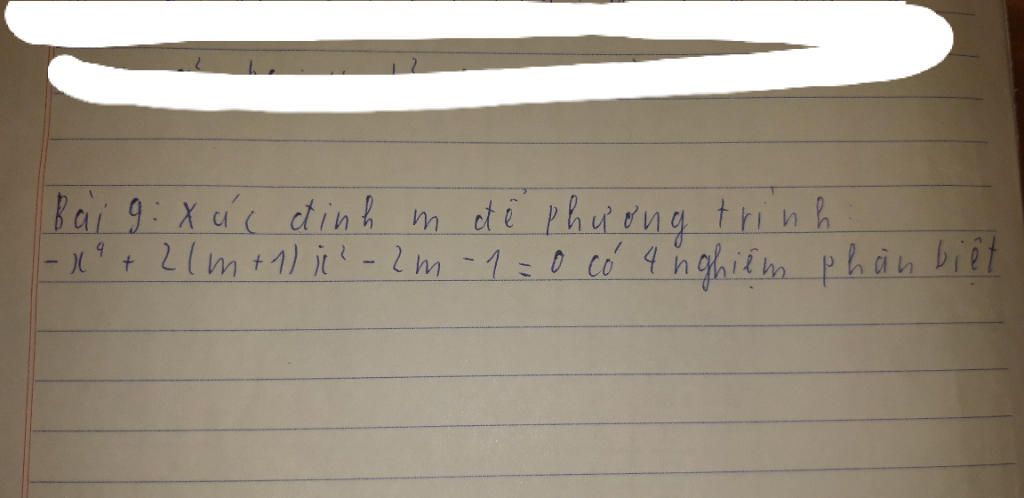 Bài 9: Xác định m để phương trình:
-x⁴ + 2(m+1)x² - 2m - 1 = 0 có 4 nghiệm phân biệt